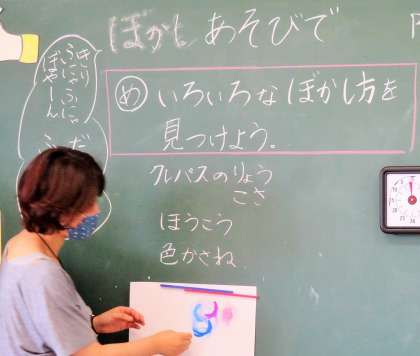 ぼかしあそびで
め いろいろなぼかし方を
見つけよう。
クレパスのりょう
こさ
ほうこう
色かさね
ふにゃふにゃ
ぼやーん